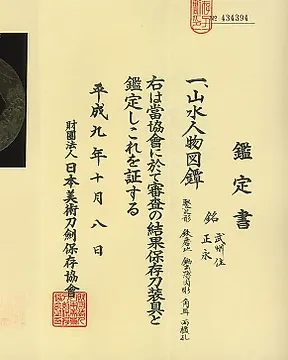 № 434394
鑑定書
一、山水人物図鐔
銘 武州住
正永
竪丸形 鉄磨地 鋤出高彫 角耳 両櫃孔
右は當協會に於て審査の結果保存刀装具と
鑑定しこれを証する
平成九年十月八日
財團法人日本美術刀劍保存協會